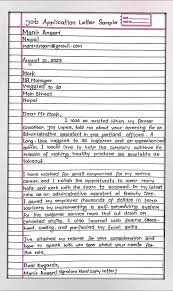 Job Application Letter Sample
Manir Ansari
Nepal
maniransari@gmail.com
August 21, 2023
Mark
HR Manager
Veggies to Go
Main Street
Nepal
Dear Mr. Mark,
I was so excited when my former
coworker, Jay Lopez, told me about your opening for an
administrative assistant in your Portland offices. A
long-time Veggies to Go customer and an experienced
I would love to help the company achieve its
mission of making healthy produce as available as
takeout.
I have worked for small companies for my entire
career, and I relish the opportunity to wear many
hats and work with the team to succeed. In my latest
role as an administrative assistant at Beauty Time
I saved my employer thousands of dollars in temp
workers by implementing a self-scheduling system
for the customer service reps that cut down on
canceled shifts. I also learned web design, time-
sheet coding, and perfected my Excel skills.
I've attached my resume for your consideration and
hope to speak with you soon about your needs for
the role.
Best Regards,
Manir Ansari (signature hard copy letter)